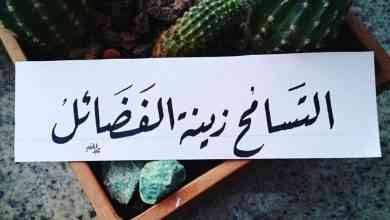 التَسامُح زينة الفَضَائلْ